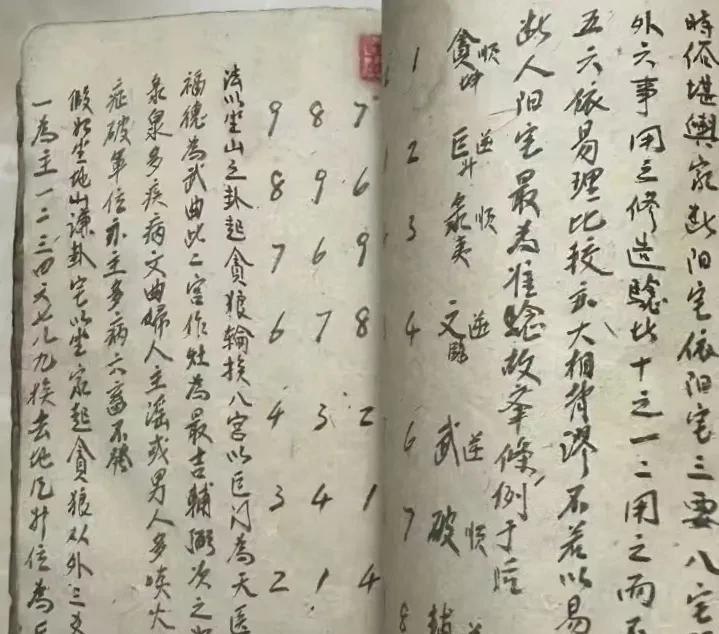 時俗堪輿家断阳宅依阳宅三要八宅
外六事用之修造驗此十之一二用之而不
五六依易理比较亦大相背謬不若以易
断人阳宅最為准驗故举條例于后
順 逆 順 逆 逆 順
貪坤 巨升 彔夷 文臨 武 破 輔
1 2 3 4 6 7 8
7 6 9 8 2 1 4
8 9 6 7 3 4 1
9 8 7 6 4 3 2
法以坐山之卦起貪狼輪挨八宮以巨门為天医
福德為武曲此二宮作灶為最吉輔弼次之
彔泉多疾病文曲婦人主淫或男人多痰火
症破军位亦主多病六畜不發
假如坐地山谦卦宅以坐家起貪狼从外三爻
一為主一二三四六七八九挨去地风升位為巨